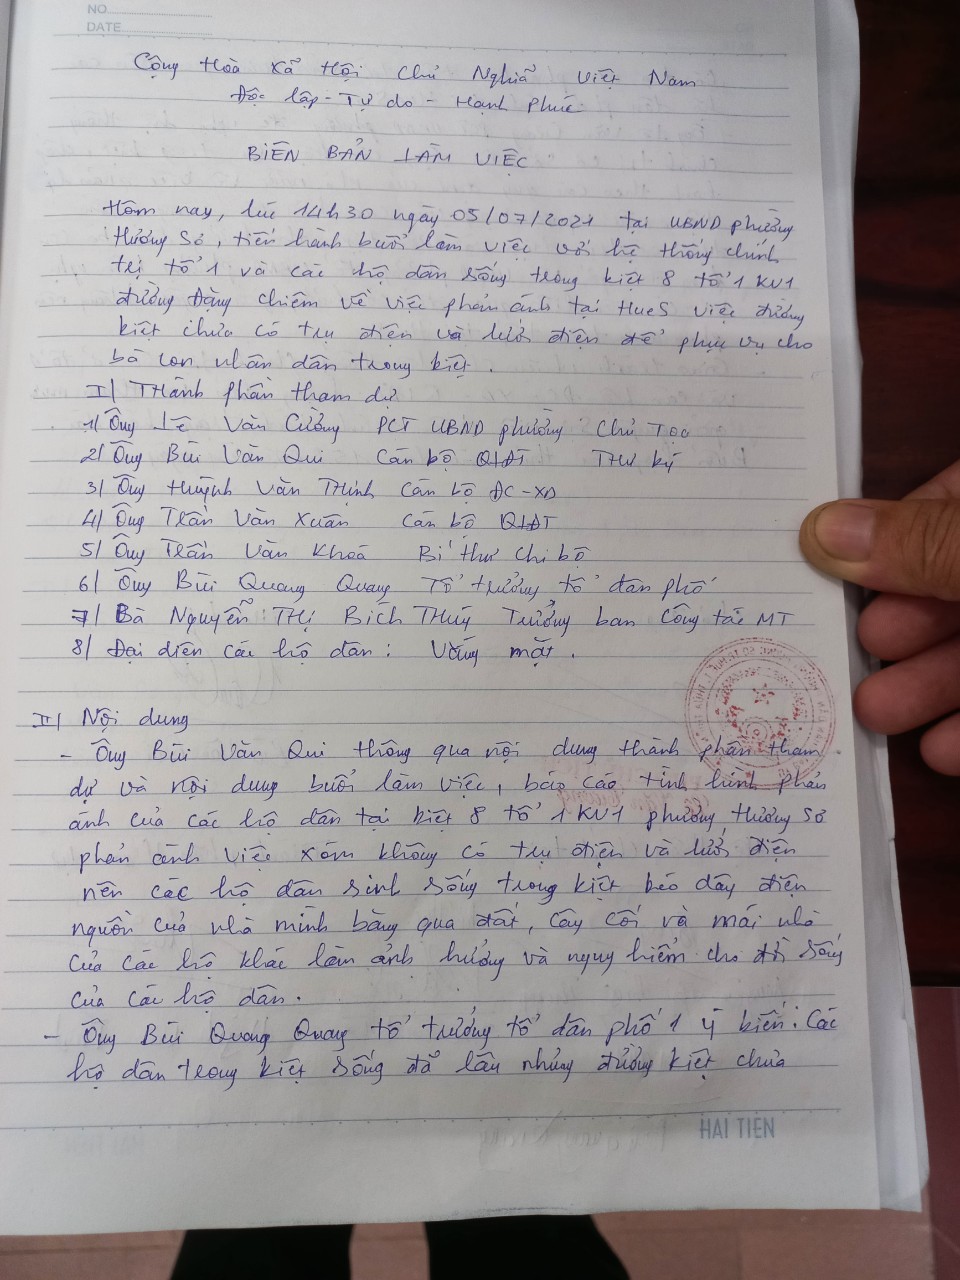 NO.
DATE
Cộng Hoà Xã Hội Chủ Nghĩa Việt Nam
Độc lập - Tự do - Hạnh Phúc
BIÊN BẢN LÀM VIỆC
Hôm nay, lúc 14h30 ngày 05/07/2021 tại UBND phường
Hương Sơ, tiến hành buổi làm việc với hệ thống chính
trị tổ 1 và các hộ dân sống trong kiệt 8 tổ 1 KV1
đường Đặng Chiêm về việc phản ánh tại HueS việc đường
kiệt chưa có trụ điện và lưới điện để phục vụ cho
bà con nhân dân trong kiệt.
I/ Thành phần tham dự
1/ Ông Lê Văn Cường PCT UBND phường Chủ Tọa
2/ Ông Bùi Văn Qui Cán bộ QLĐT Thư ký
3/ Ông Huỳnh Văn Thịnh Cán bộ ĐC-XD
4/ Ông Trần Văn Xuân Cán bộ QLĐT
5/ Ông Trần Văn Khoá Bí thư chi bộ
6/ Ông Bùi Quang Quang Tổ trưởng tổ dân phố
7/ Bà Nguyễn Thị Bích Thuý Trưởng ban Công tác MT
8/ Đại diện các hộ dân: Vắng mặt.
II/ Nội dung
- Ông Bùi Văn Qui thông qua nội dung thành phần tham
dự và nội dung buổi làm việc, báo cáo tình hình phản
ánh của các hộ dân tại kiệt 8 tổ 1 KV1 phường Hương Sơ
phản ánh việc xóm không có trụ điện và lưới điện
nên các hộ dân sinh sống trong kiệt kéo dây điện
nguồn của nhà mình băng qua đất, cây cối và mái nhà
của các hộ khác làm ảnh hưởng và nguy hiểm cho đời sống
của các hộ dân.
- Ông Bùi Quang Quang tổ trưởng tổ dân phố 1 ý kiến: Các
hộ dân trong kiệt sống đã lâu nhưng đường kiệt chưa
HAI TIEN